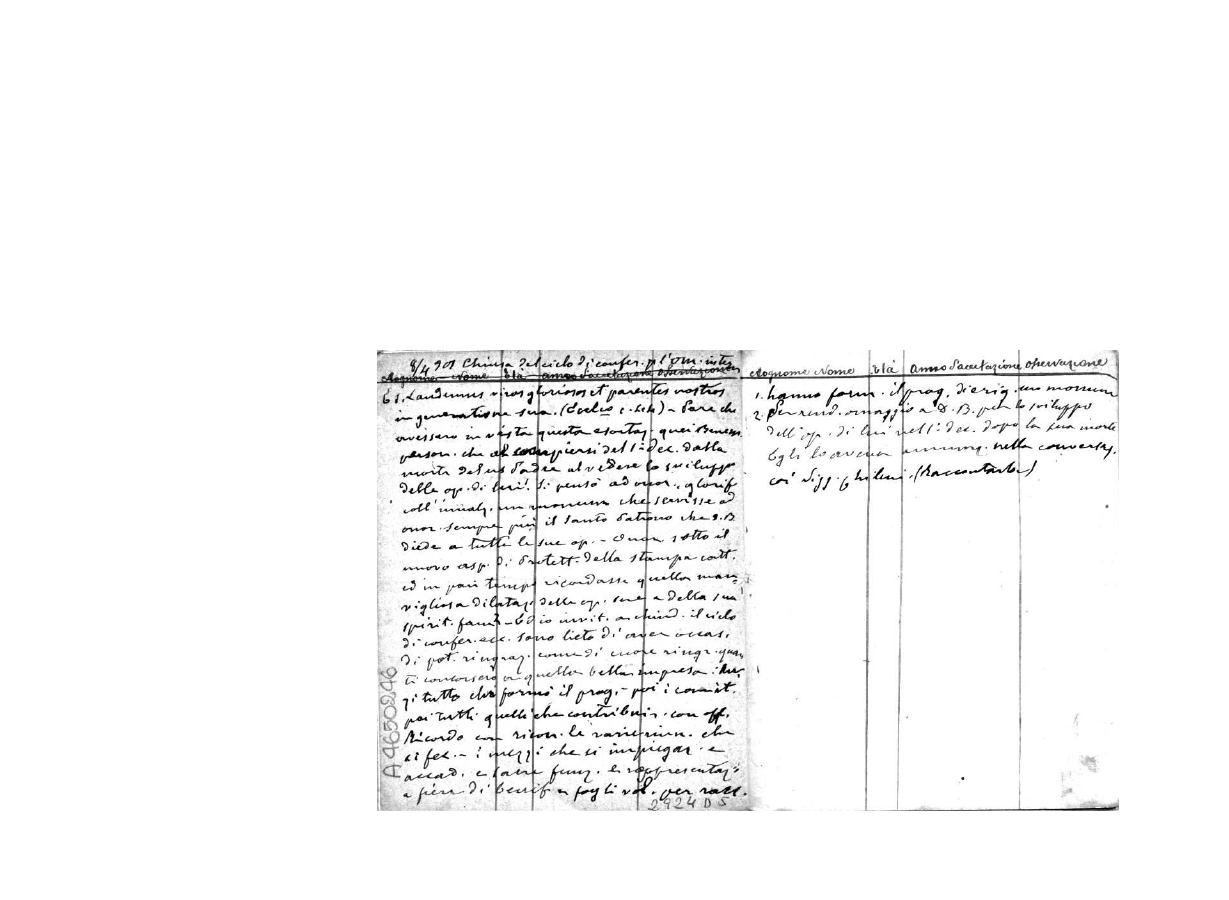 8/4 901 Chiusa del ciclo di confer. p l'om. inter
Cognome Nome Età anno d'accetazione osservazione
61. Laudemus viros gloriosos et parentes nostros
in generatione sua. (Eccli c. 44) - Pare che
avessero in vista questa esortaz. quei Benem.
person. che al compiersi del 1º dec. dalla
morte del ns Padre al vedere lo sviluppo
delle op. di lui. Si pensò ad onor., glorif
coll'innalz. un monum che servisse ad
onor. sempre più il Santo Patrono che D.B
diede a tutte le sue op. - Onor sotto il
nuovo asp. di Protett. della stampa catt.
ed in pari tempo ricordasse quella mara
vigliosa dilataz. delle op. sue e della sua
spirit. fam. - Ed io invit. a chiud. il ciclo
di confer. ecc. sono lieto di aver occas.
di pot. ringraz. come di cuore ringr. quan
ti concorsero a quella bella impresa:
zi tutto chi formò il prog. - poi i comit.
poi tutti quelli che contribuir. con off.
Ricordo con ricon. le varie riun. che
si fec. - i mezzi che si impiegar. e
accad. e sacre funz. e rappresentaz.
e fiere di benef e fogli vol. per racc.
A4650246
2924 D 5
Cognome Nome Età Anno d'accetazione osservazione
1. hanno form. il prog. di erig. un monum
2. Per rend. omaggio a D. B. per lo sviluppo
dell'op. di lui nell'1º dec. dopo la sua morte
Egli lo aveva annunz. nella conversaz.
coi Sigg. Ghilini. (Raccontarla)